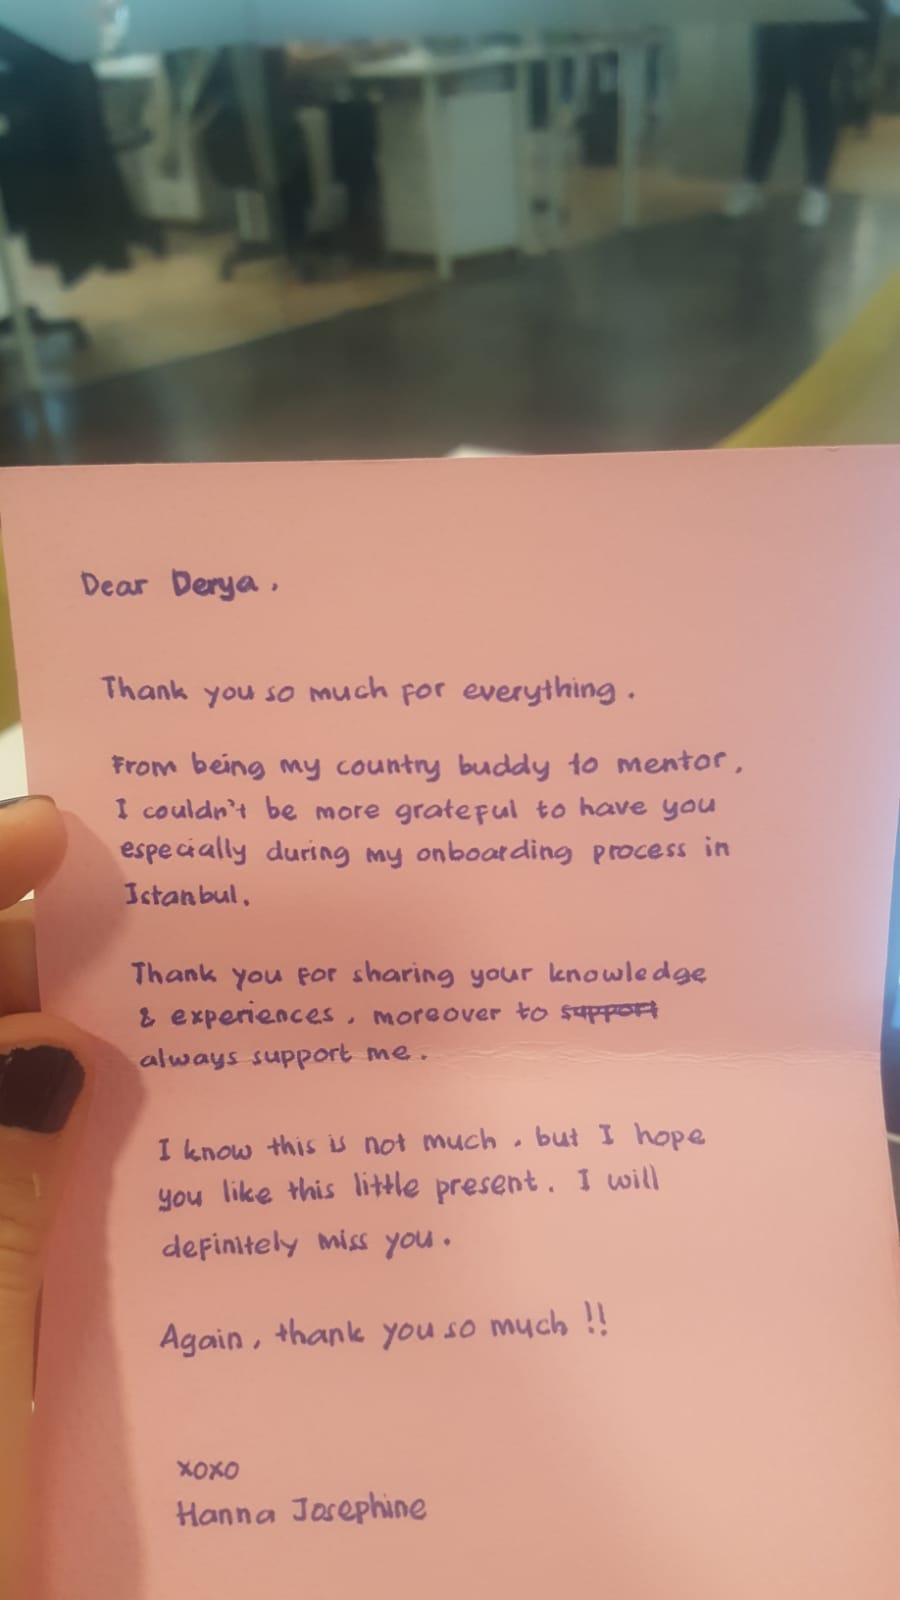 Dear Derya,
Thank you so much for everything.
From being my country buddy to mentor,
I couldn't be more grateful to have you
especially during my onboarding process in
Istanbul.
Thank you for sharing your knowledge
& experiences, moreover to support
always support me.
I know this is not much, but I hope
you like this little present. I will
definitely miss you.
Again, thank you so much !!
xoxo
Hanna Josephine